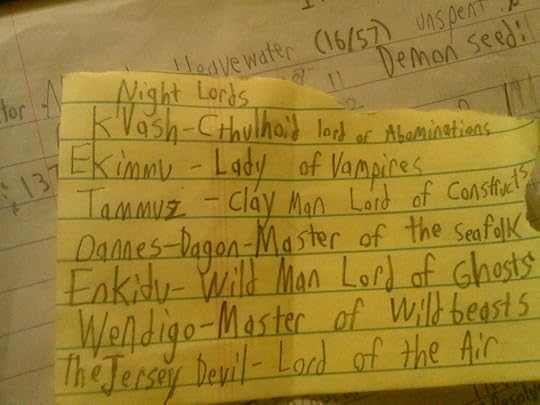 unspent
(16/57)
Demon seed:
tor
137
Night Lords
K'Vash-Cthulhoid lord of Abominations
Ekimmu - Lady of Vampires
Tammuz - Clay Man Lord of Constructs
Oannes-Dagon-Master of the seafolk
Enkidu- Wild Man Lord of Ghosts
Wendigo-Master of Wildbeasts
The Jersey Devil- Lord of the Air